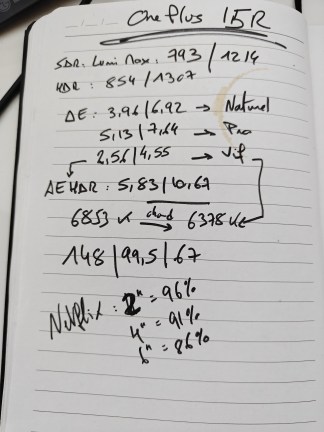 One Plus 15R
SDR: Lumi Max: 793 / 1214
HDR: 854 / 1307
ΔE: 3,96 / 6,92 → Naturel
5,13 / 7,64 → Pro
2,56 / 4,55 → Vif
ΔE HDR: 5,83 / 10,67
6853 K chaud → 6378 K
148 / 99,5 / 67
Netflix: 2h = 96%
4h = 91%
6h = 86%